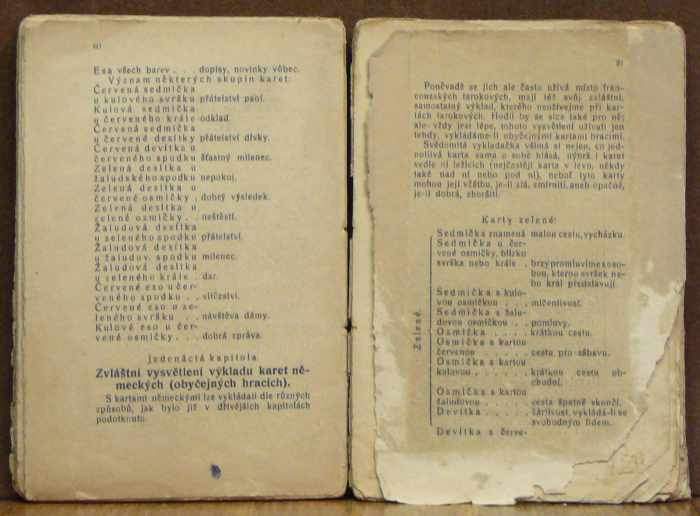 Esa všech barev . . . dopisy, novinky vůbec.
Význam některých skupin karet:
Červená sedmička
u kulového svršku přátelství paní.
Kulová sedmička
u červeného krále odklad.
Červená sedmička
u červené desítky přátelství dívky.
Červená devítka u
červeného spodku šťastný milenec.
Zelená desítka u
žaludského spodku nepokoj.
Zelená desítka u
červené osmičky . dobrý výsledek.
Zelená desítka u
zelené osmičky . . neštěstí.
Žaludová desítka
u zeleného spodku přátelství.
Žaludová desítka
u žaludov. spodku milenec.
Žaludová desítka
u zeleného krále . dar.
Červené eso u čer-
veného spodku . . vítězství.
Červené eso u ze-
leného svršku . . . návštěva dámy.
Kulové eso u čer-
vené osmičky . . . dobrá zpráva.
Jedenáctá kapitola
Zvláštní vysvětlení výkladu karet ně-
meckých (obyčejných hracích).
S kartami německými lze vykládati dle různých
způsobů, jak bylo již v dřívějších kapitolách
podotknuto.
Poněvadž se jich ale často užívá místo fran-
couzských tarokových, mají též svůj zvláštní,
samostatný výklad, kterého neužívejme při kar-
tách tarokových. Hodil by se sice také pro ně;
ale vždy jest lépe, tohoto vysvětlení užívati jen
tehdy, vykládáme-li obyčejnými kartami hracími.
Svědomitá vykladačka všímá si nejen, co jed-
notlivá karta sama o sobě hlásá, nýbrž i karet
vedle ní ležících (nejčastěji karta v levo, někdy
také nad ní nebo pod ní), neboť tyto karty
mohou její věštbu, je-li zlá, zmírniti, aneb opačně,
je-li dobrá, zhoršiti.
Karty zelené:
Zelené.
Sedmička znamená malou cestu, vycházku.
Sedmička u čer-
vené osmičky, blízko
svrška nebo krále . brzy promluvíme s oso-
bou, kterou svršek ne-
bo král představují.
Sedmička s kulo-
vou osmičkou . . . mlčenlivost.
Sedmička s žalu-
dovou osmičkou . . pomluvy.
Osmička . . . . . krátkou cestu.
Osmička s kartou
červenou . . . . . cestu pro zábavu.
Osmička s kartou
kulovou . . . . . . krátkou cestu ob-
chodní.
Osmička s kartou
žaludovou . . . . . cesta špatně skončí.
Devítka . . . . . žárlivost, vykládá-li se
svobodným lidem.
Devítka s červe-